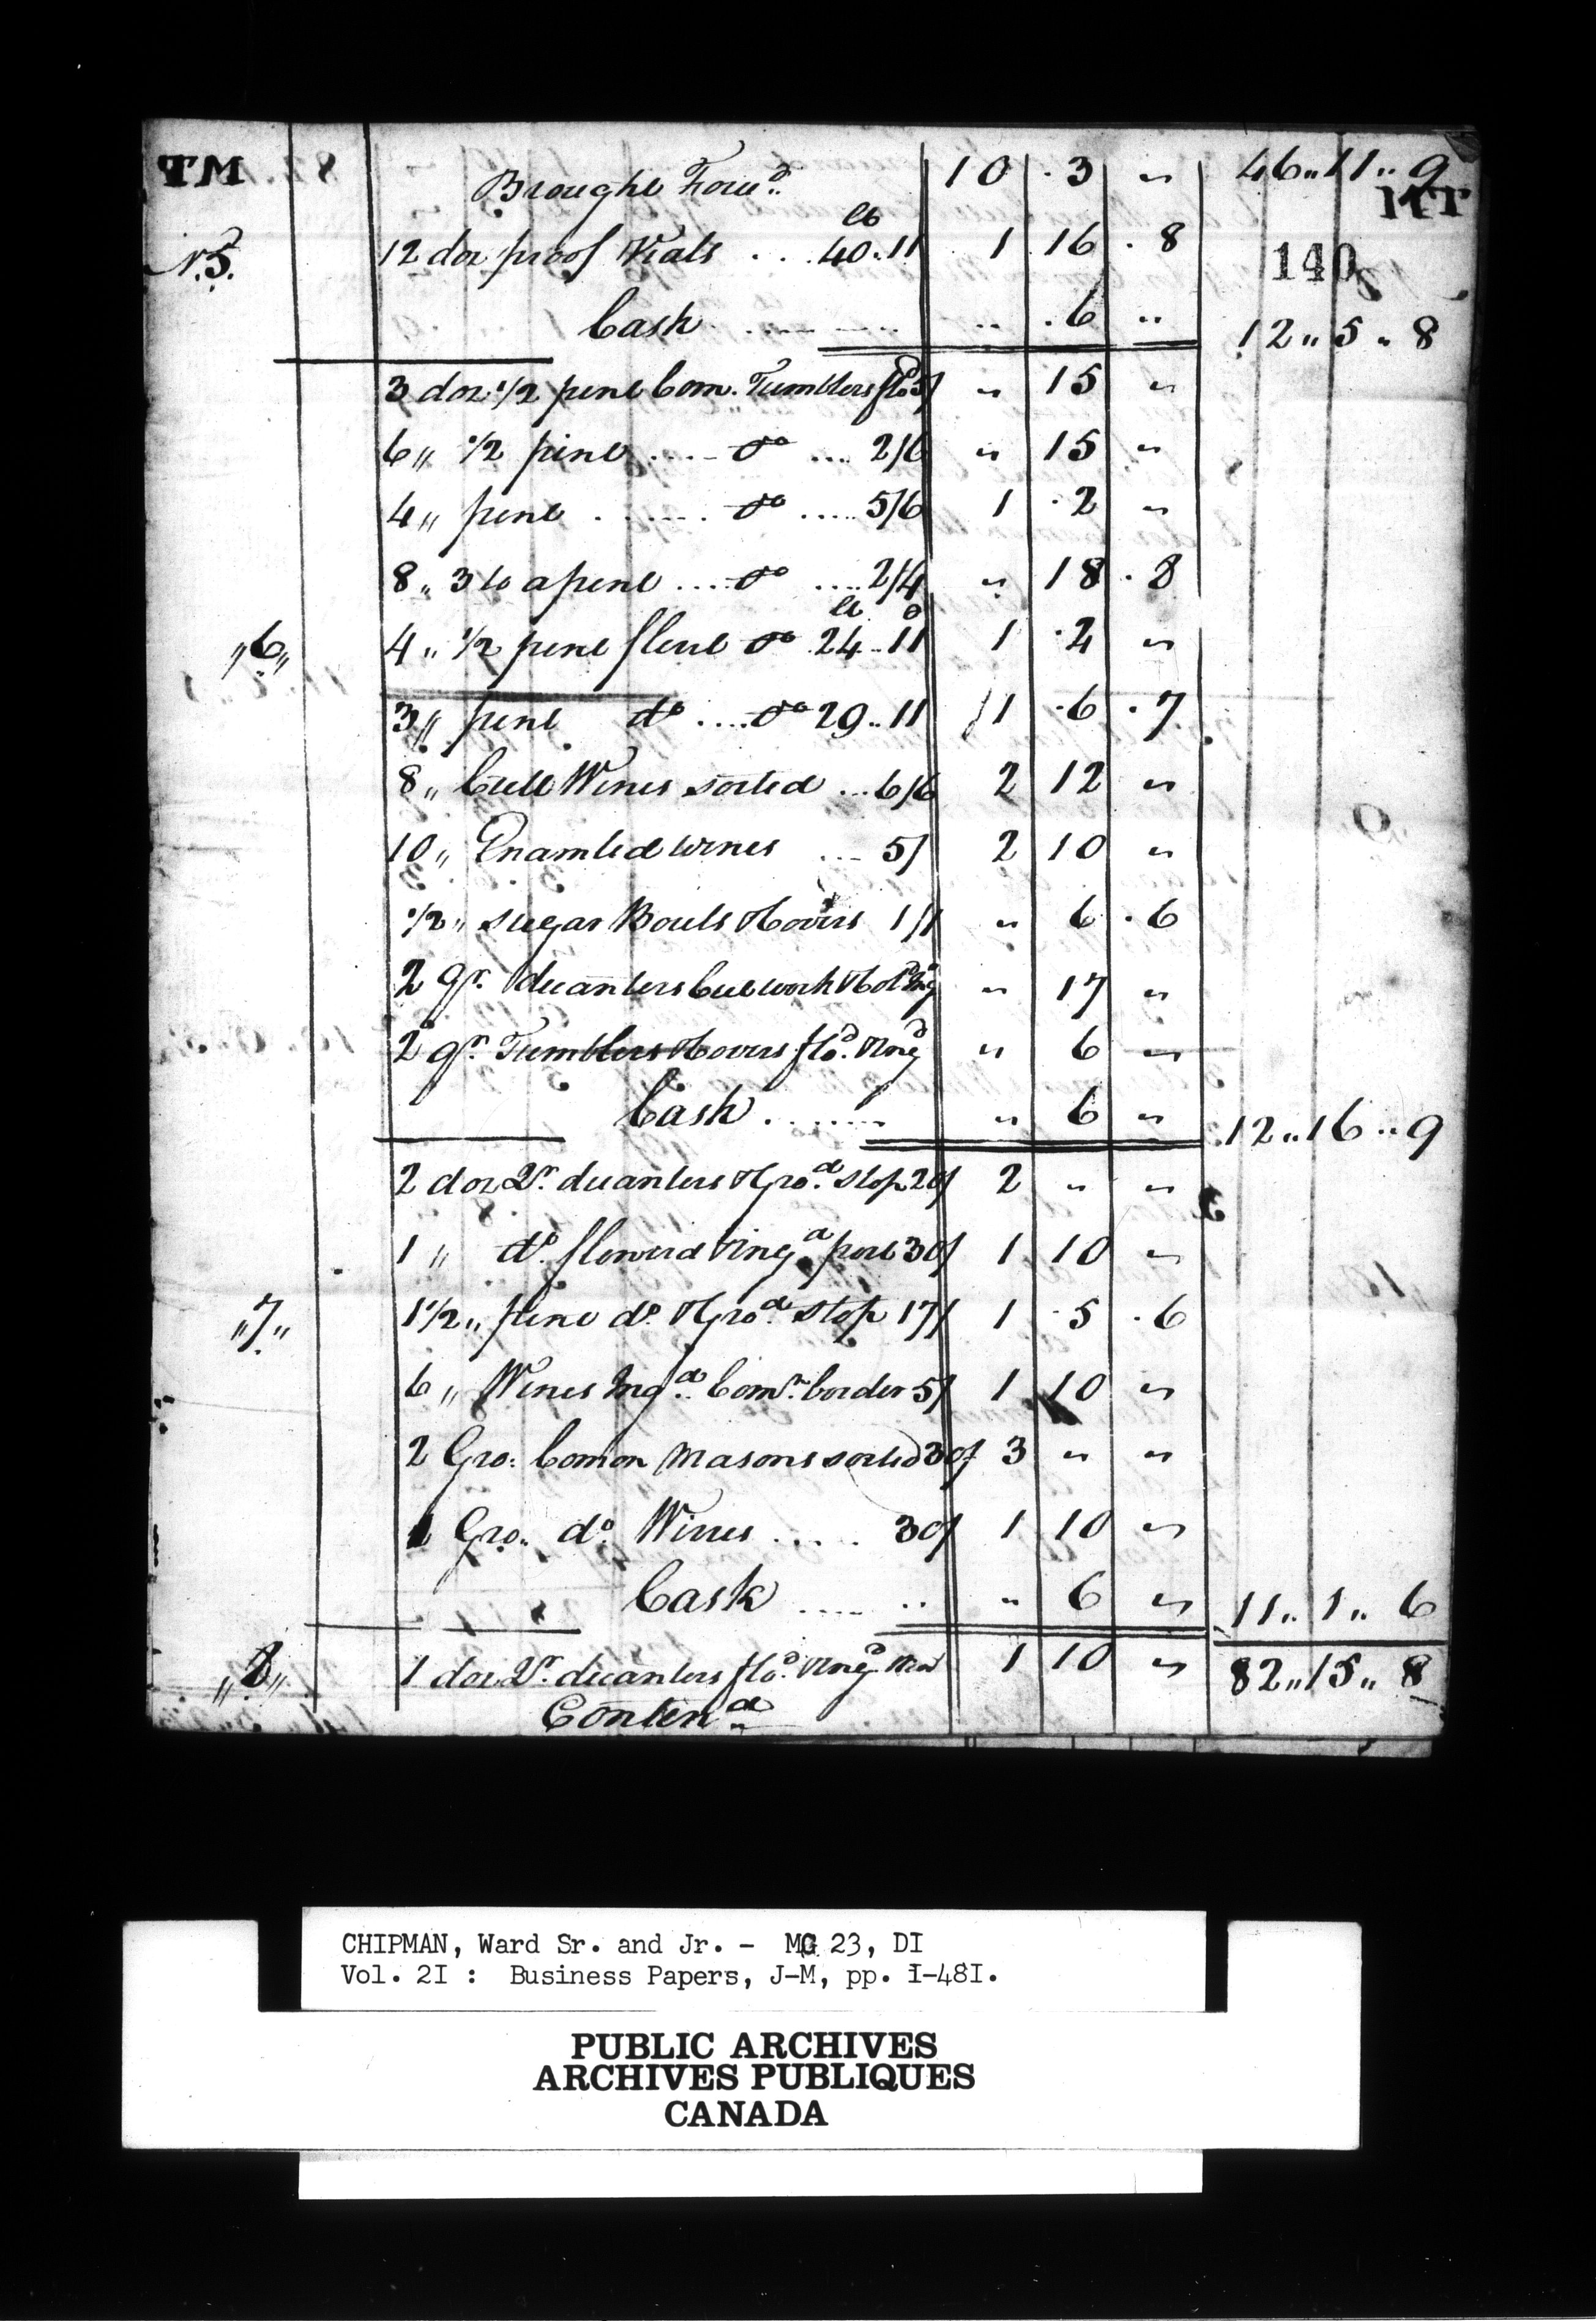 TM Brought Forwd. 10 . 3 " 46 .. 11 .. 9
N.5. 12 doz proof Vials ... 40 lb .. 11 1 16 . 8
140
Cask .. . 6 .. 12 .. 5 .. 8
3 doz 1/2 pint Com. Tumblers flo.d 5/ " 15 "
6 " 1/2 pint .... do .... 2/6 " 15 "
4 " pint ....... do ..... 5/6 1 . 2 "
8 " 3 to a pint .... do .... 2/4 " 18 . 8
" 6 " 4 " 1/2 pint flint do 24 lb .. 11 d 1 . 2 "
3 " pint do .... do 29 .. 11 1 . 6 . 7
8 " Cutt Wines sorted ... 6/6 2 12 "
10 " Enamled wines ... 5/ 2 10 "
1/2 " sugar Bouls & Covers 1/1 " 6 . 6
2 qr. decanters Cutt work & " 17 "
2 qr. Tumblers & Covers flo.d & Ing.d " 6 "
Cask ....... " 6 " 12 .. 16 .. 9
2 doz Qt. decanters & Gro.d stop 20/ 2 " "
1 " do. flowerd & Ing.d port 30/ 1 10 "
" 7 " 1 1/2 " pint do. & Gro.d stop 17/ 1 . 5 . 6
6 " Wines Ing.d Comn. border 5/ 1 10 "
2 Gro: Comon Masons sorted 30/ 3 " "
1 Gro. do. Wines ..... 30/ 1 10 "
Cask ..... .. " 6 " 11 .. 1 .. 6
" 8 " 1 doz Qt. decanters flo.d & Ing.d 1 10 " 82 .. 15 .. 8
Contin.d
CHIPMAN, Ward Sr. and Jr. - MG 23, DI
Vol. 2I : Business Papers, J-M, pp. I-48I.
PUBLIC ARCHIVES
ARCHIVES PUBLIQUES
CANADA